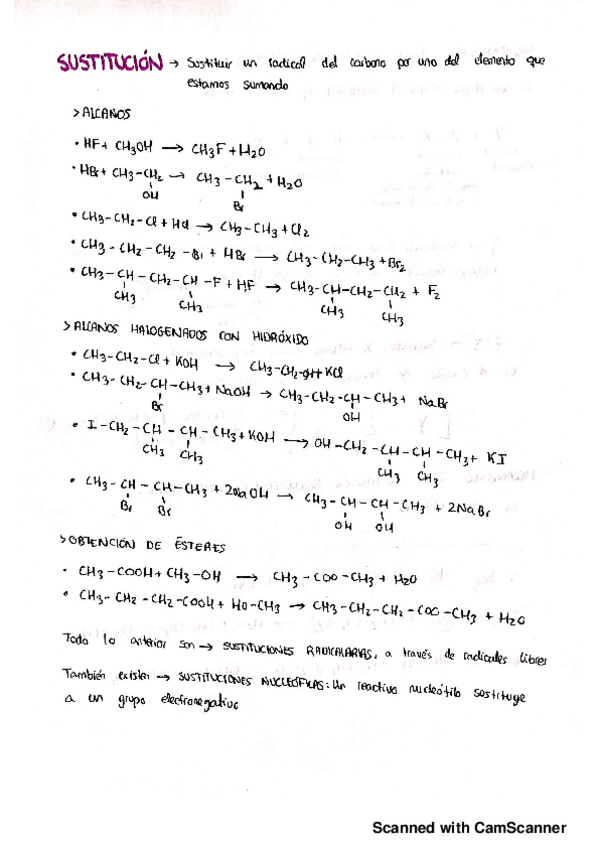 SUSTITUCIÓN → Sustituir un radical del carbono por uno del elemento que
estamos sumando
> ALCANOS
• HF + CH3OH → CH3F + H2O
• HBr + CH3-CH2 → CH3-CH2 + H2O
OH Br
• CH3-CH2-Cl + HCl → CH3-CH3 + Cl2
• CH3-CH2-CH2-Br + HBr → CH3-CH2-CH3 + Br2
• CH3-CH-CH2-CH-F + HF → CH3-CH-CH2-CH2 + F2
CH3 CH3 CH3 CH3
> ALCANOS HALOGENADOS CON HIDRÓXIDO
• CH3-CH2-Cl + KOH → CH3-CH2-OH + KCl
• CH3-CH2-CH-CH3 + NaOH → CH3-CH2-CH-CH3 + NaBr
Br OH
• I-CH2-CH-CH-CH3 + KOH → OH-CH2-CH-CH-CH3 + KI
CH3 CH3 CH3 CH3
• CH3-CH-CH-CH3 + 2NaOH → CH3-CH-CH-CH3 + 2NaBr
Br Br OH OH
> OBTENCIÓN DE ÉSTERES
• CH3-COOH + CH3-OH → CH3-COO-CH3 + H2O
• CH3-CH2-CH2-COOH + HO-CH3 → CH3-CH2-CH2-COO-CH3 + H2O
Todo lo anterior son → SUSTITUCIONES RADICALARIAS, a través de radicales libres
También existen → SUSTITUCIONES NUCLEÓFILAS: Un reactivo nucleófilo sustituye
a un grupo electronegativo
Scanned with CamScanner